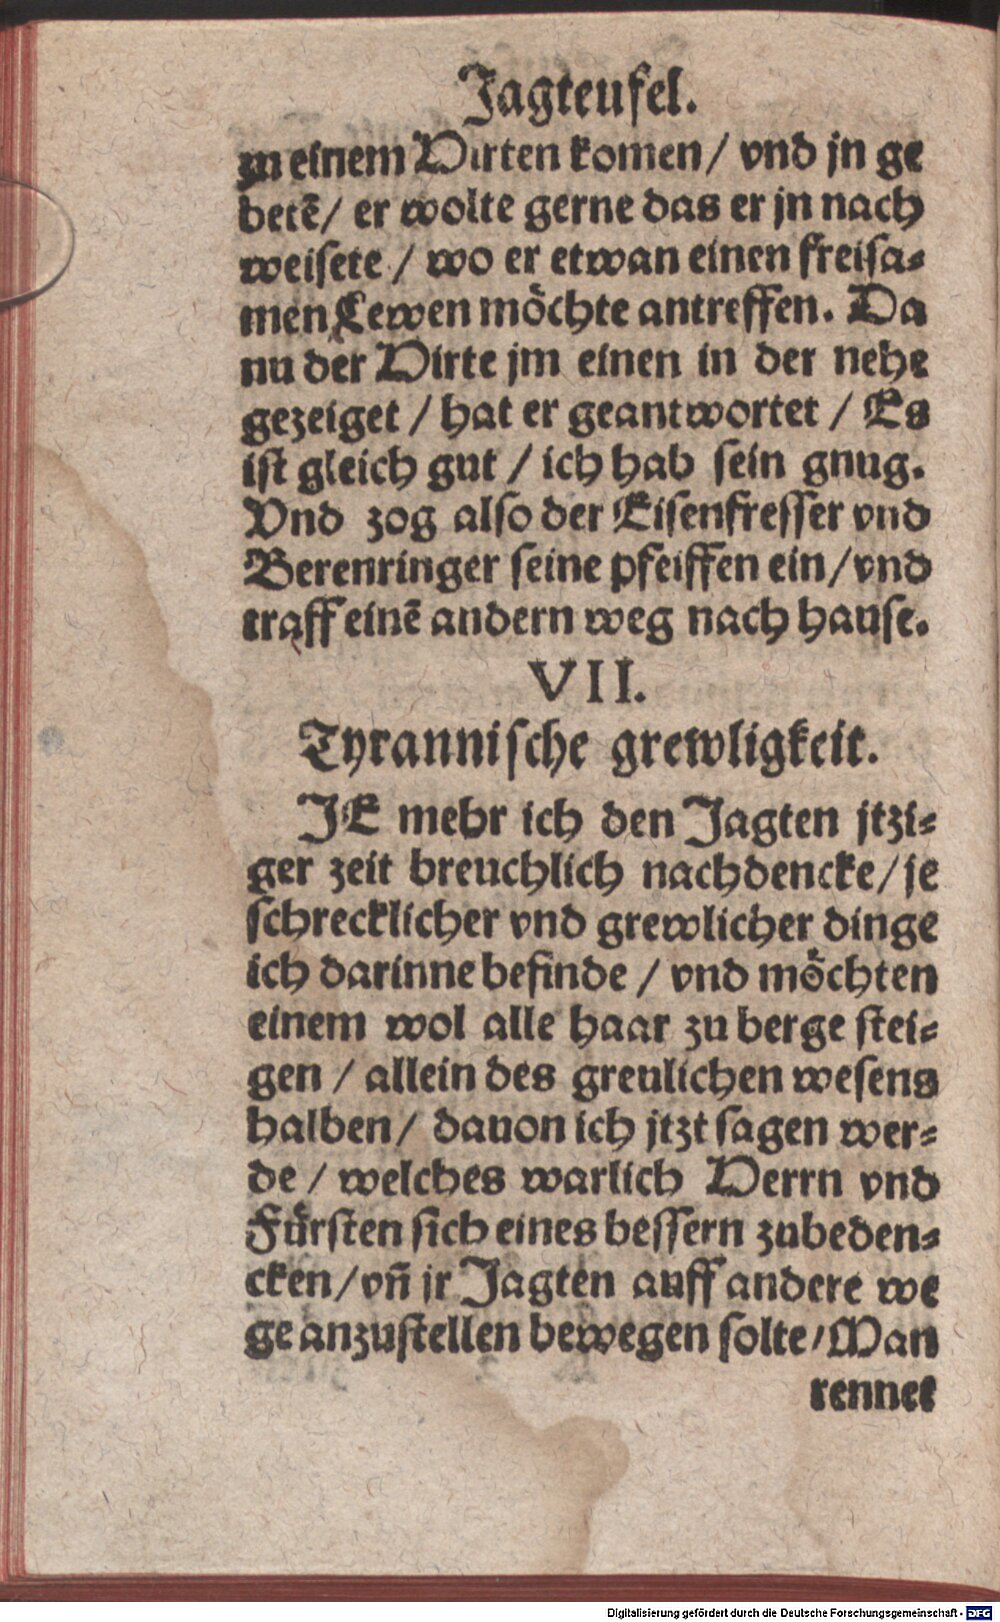 Jagteufel.
zu einem Hirten komen / vnd jn ge
betẽ / er wolte gerne das er jn nach
weisete / wo er etwan einen freisa⸗
men Lewen möchte antreffen. Da
nu der Hirte jm einen in der nehe
gezeiget / hat er geantwortet / Es
ist gleich gut / ich hab sein gnug.
Vnd zog also der Eisenfresser vnd
Berenringer seine pfeiffen ein / vnd
traff einẽ andern weg nach hause.
VII.
Tyrannische grewligkeit.
JE mehr ich den Jagten jtzi⸗
ger zeit breuchlich nachdencke / je
schrecklicher vnd grewlicher dinge
ich darinne befinde / vnd möchten
einem wol alle haar zu berge stei⸗
gen / allein des greulichen wesens
halben / dauon ich jtzt sagen wer⸗
de / welches warlich Herrn vnd
Fürsten sich eines bessern zubeden⸗
cken / vñ jr Jagten auff andere we
ge anzustellen bewegen solte / Man
rennet
Digitalisierung gefördert durch die Deutsche Forschungsgemeinschaft - DFG